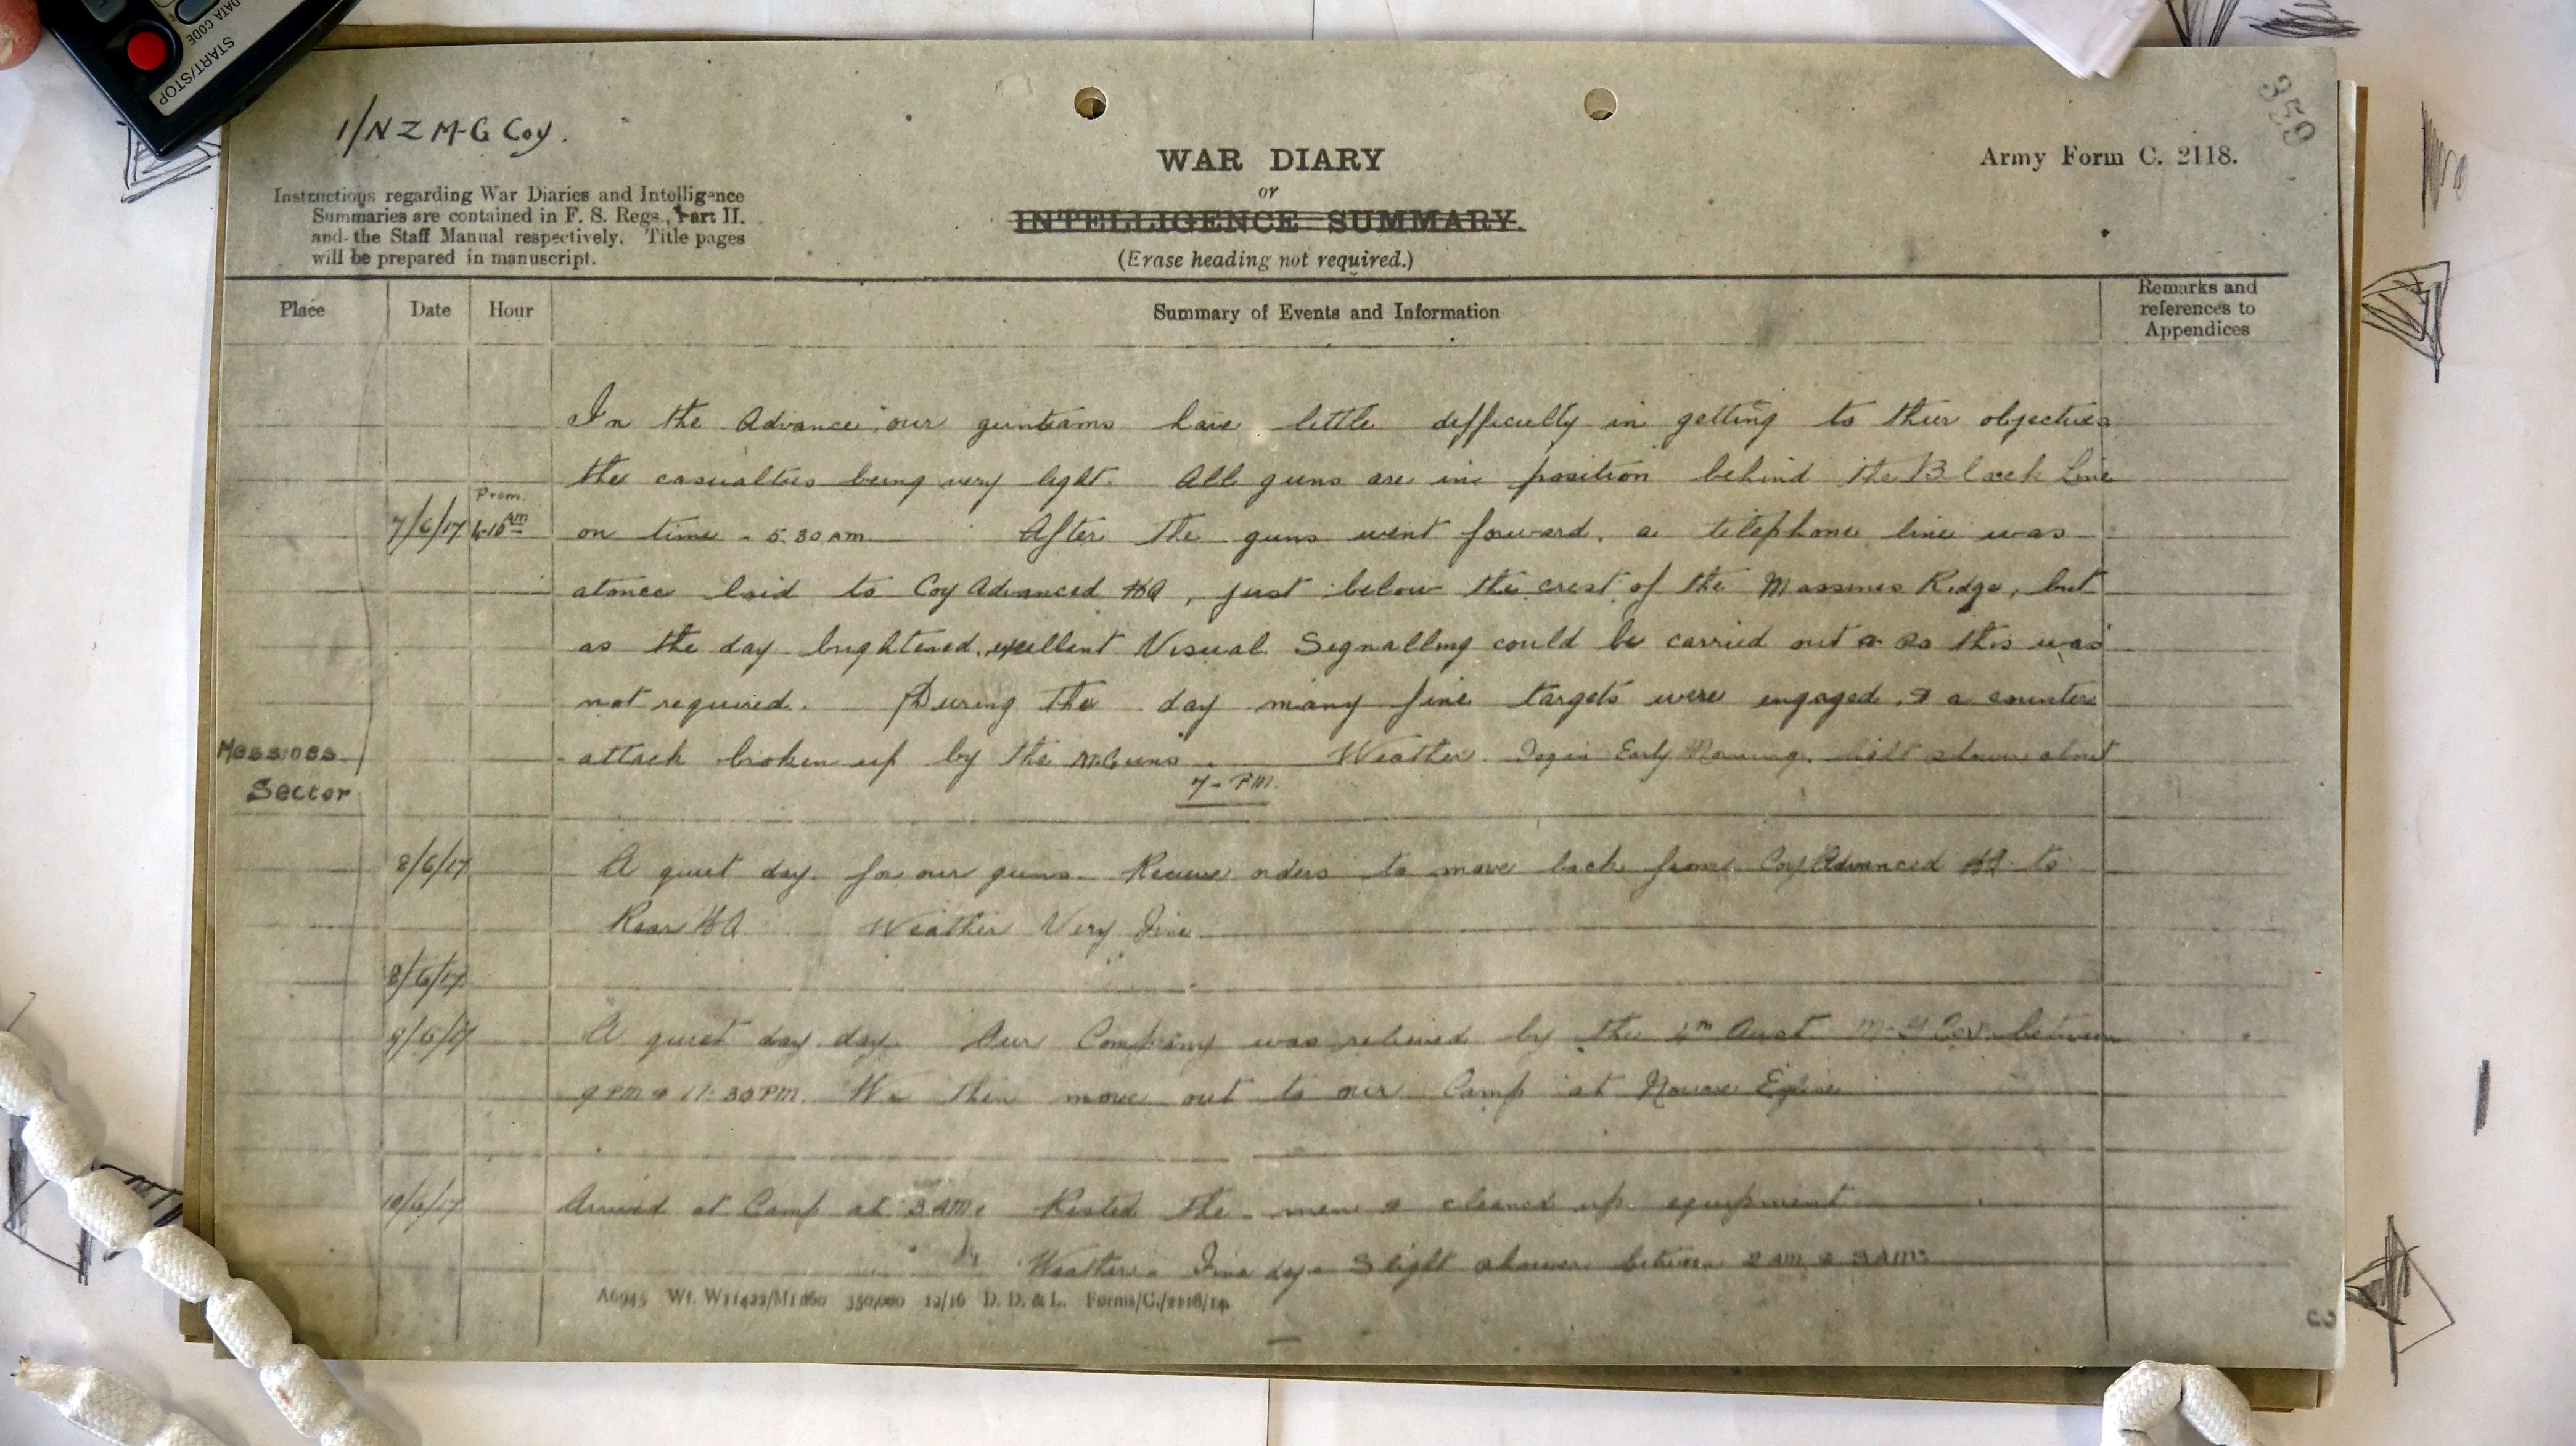 START/STOP
DATA CODE
359
1/NZ M-G Coy.
Army Form C. 2118.
WAR DIARY
or
INTELLIGENCE SUMMARY.
(Erase heading not required.)
Instructions regarding War Diaries and Intelligence
Summaries are contained in F. S. Regs., Part II.
and the Staff Manual respectively. Title pages
will be prepared in manuscript.
Place Date Hour Summary of Events and Information Remarks and
references to
Appendices
In the Advance our gunteams have little difficulty in getting to their objectives
the casualties being very light. All guns are in position behind the Black Line
From
7/6/17 AM on time - 5.30 am After the guns went forward, a telephone line was
atonce laid to Coy Advanced HQ, just below the crest of the Massines Ridge, but
as the day brightened, excellent Visual Signalling could be carried out & so this was
not required. During the day many fine targets were engaged, & a counter
Messines attack broken up by the M.Guns. Weather. Fog in Early Morning, light shower about
7 - PM.
Sector
8/6/17 A quiet day for our guns. Receive orders to move back from Coy Advanced HQ to
Rear HQ Weather Very Fine
8/6/17
9/6/17 A quiet day day. Our Company was relieved by the 4th Aust. M-G Coy between
9 PM & 11.30 PM. We then move out to our Camp at Neuve Eglise
10/6/17 Arrived at Camp at 3 AM. Rested the men & cleaned up equipment
Weather. Fine day. Slight shower between 2 am & 3 AM.
350,000 12/16 D. D. & L. Forms/C./2118/14.